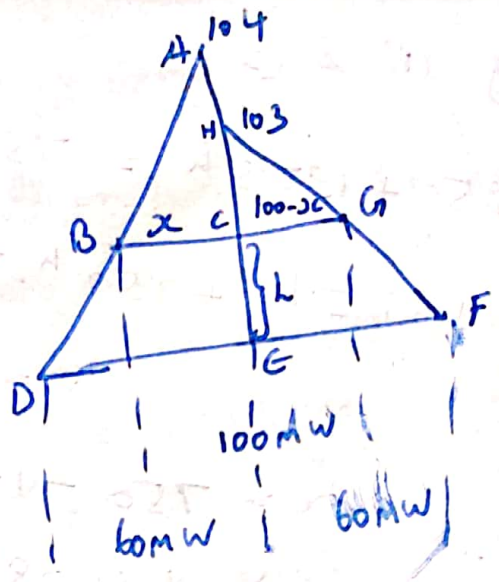 A 104
H 103
B x C 100-x G
h
F
D
E
100MW
60MW 60MW